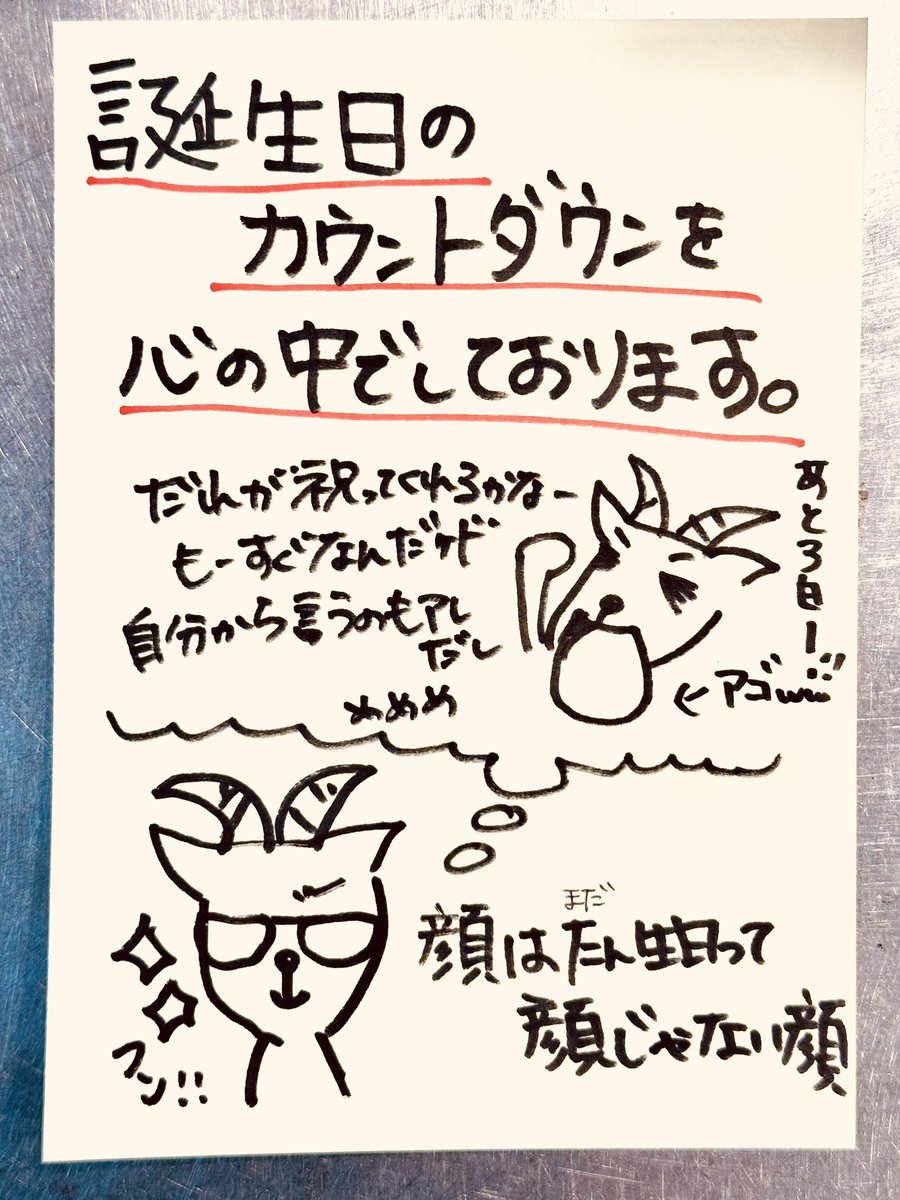 誕生日の
カウントダウンを
心の中でしております。
だれが祝ってくれるかなー
もーすぐなんだケド
自分から言うのもアレ
だし
めめめ
あと3日ー!!
←アゴwww
フン!!
まだ
顔はたん生日って
顔じゃない顔